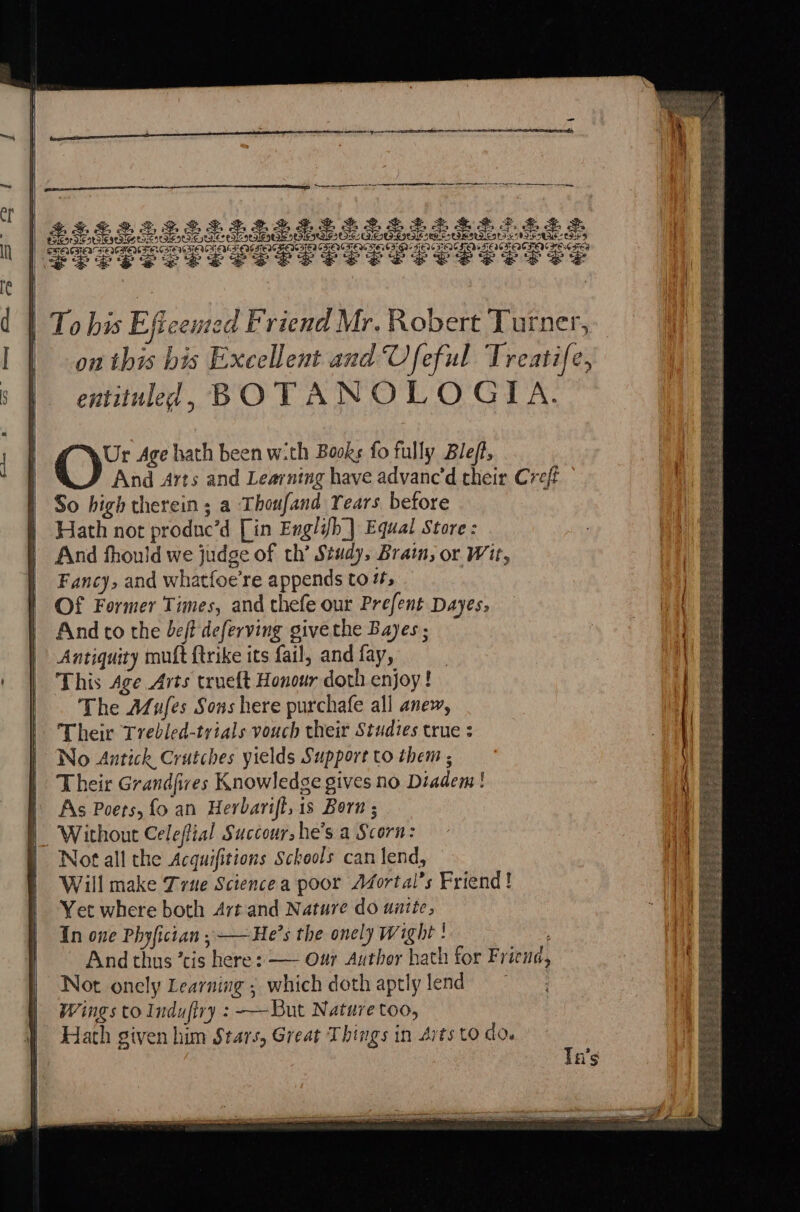 To his Eſteemed Friend Mr. Robert Turner,
on this his Excellent and Uſeful Treatiſe,
entituled, BOTANOLOGIA.
OUr Age hath been with Books ſo fully Bleſt,
And Arts and Learning have advanc'd their Creſt
So high therein; a Thouſand Years before
Hath not produc'd [in Engliſh] Equal Store:
And ſhould we judge of th' Study, Brain, or Wit,
Fancy, and whatſoe're appends to it,
Of Former Times, and theſe our Preſent Dayes,
And to the beſt deſerving give the Bayes;
Antiquity muſt ſtrike its ſail, and ſay,
This Age Arts trueſt Honour doth enjoy!
The Muſes Sons here purchaſe all anew,
Their Trebled-trials vouch their Studies true:
No Antick Crutches yields Support to them;
Their Grandſires Knowledge gives no Diadem!
As Poets, ſo an Herbariſt, is Born;
Without Celeſtial Succour, he's a Scorn:
Not all the Acquiſitions Schools can lend,
Will make True Science a poor Mortal's Friend!
Yet where both Art and Nature do unite,
In one Phyſician; —— He's the onely Wight!
And thus 'tis here: —— Our Author hath for Friend,
Not onely Learning; which doth aptly lend
Wings to Induſtry: —— But Nature too,
Hath given him Stars, Great Things in Arts to do.
In's